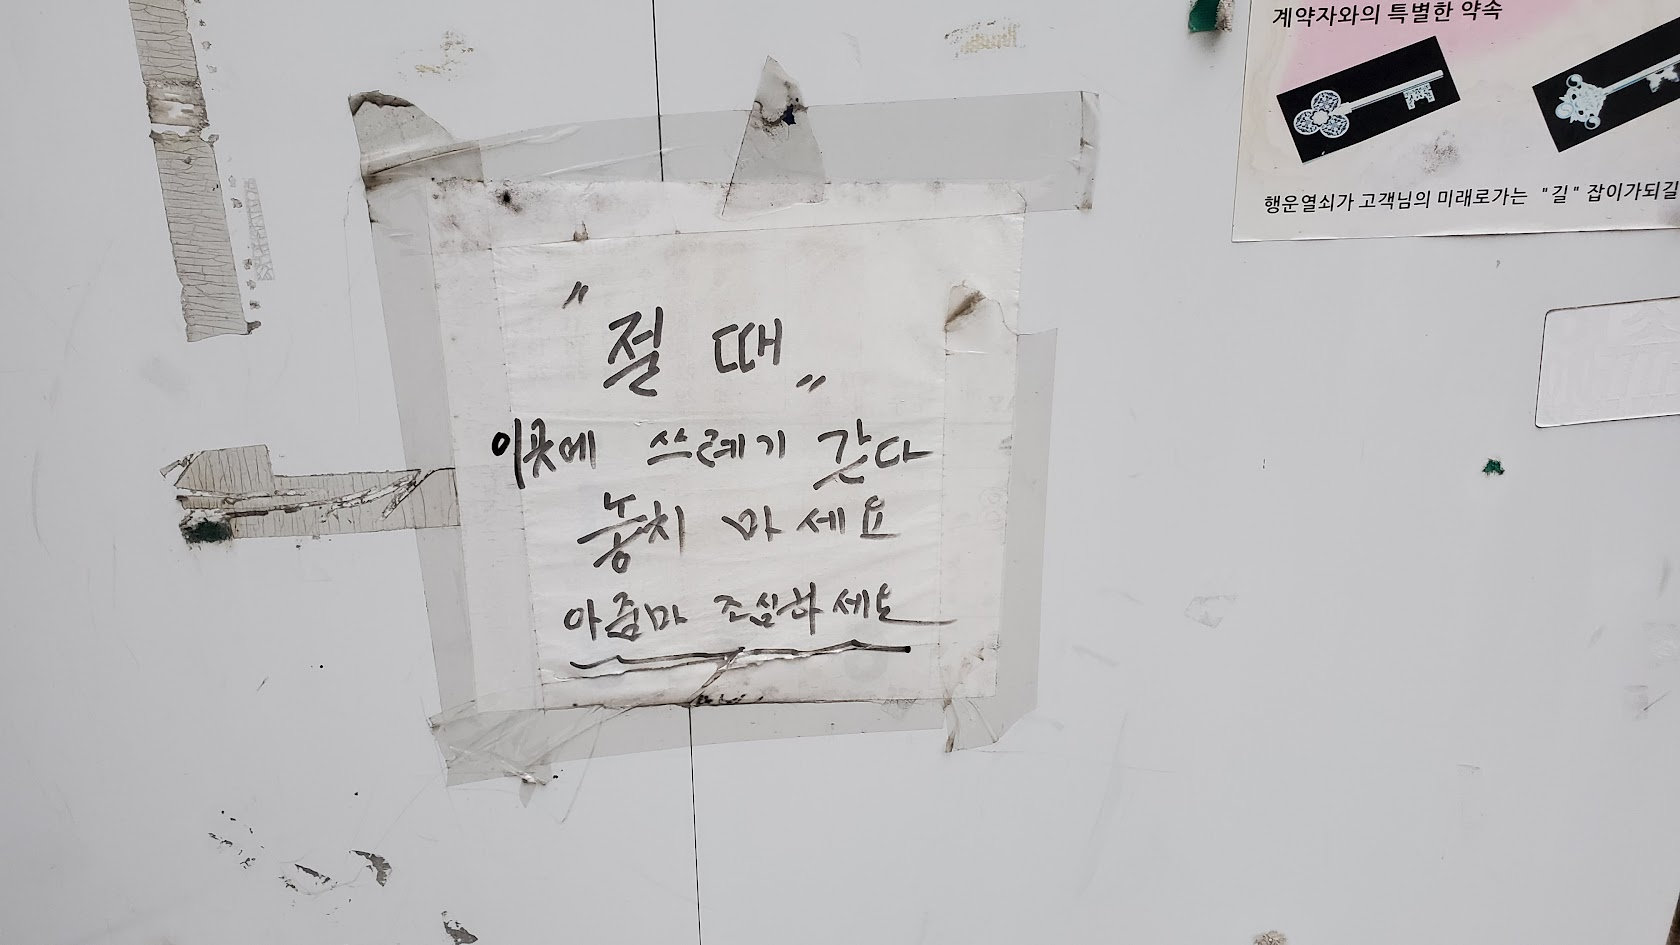 "절 때"
이곳에 쓰레기 갓다
놓치 마세요
아줌마 조심하세요
계약자와의 특별한 약속
행운열쇠가 고객님의 미래로가는 "길" 잡이가되길